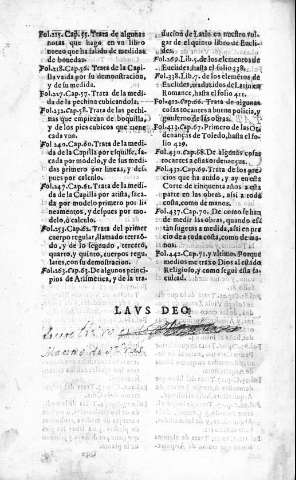 Fol.215. Cap.55. Trata de algunas
notas que hago en vn libro
nonco que ha salido de medidas
de bouedas.
Fol.218. Cap.56. Trata de la Capilla
vaida por su demonstracion,
y de su medida.
Fol.227. Cap.57. Trata de la medida
de la pechina cubicandola.
Fol.232. Cap.58. Trata de las pechinas
que empiezan de boquilla,
y de los pies cubicos que tiene
cada vna.
Fol.240. Cap.60. Trata de la medida
de la Capilla por esquilfe, sacada
por modelo, y de sus medidas
primero por lineas, y despues
por calculo.
Fol.247. Cap.61. Trata de la medida
de la Capilla por arista, sacada
por modelo primero por lineamentos,
y despues por modelo,
ò calculo.
Fol.253. Cap.62. Trata del primer
cuerpo regular, llamado tetraedro,
y de lo segundo, tercero,
quarto, y quinto, cuerpos regulares,
con su demostracion.
Fol.263. Cap.63. De algunos principios
de Arismetica, y de la traduccion
de Latin en nuestro vulgar
de el quinto libro de Euclides.
Fol.269. Lib.5. de los elementos de
Euclides, hasta el folio 338.
Fol.338. Lib.7. de los elementos de
Euclides, traducidos del Latin en
Romance, hasta el folio 411.
Fol.412. Cap.66. Trata de algunas
cosas tocantes a buena policia, y
pusieron por ordenanças.
Fol.423. Cap.67. Primero de las Ordenanças
de Toledo, hasta el folio
439.
Fol.430. Cap.68. De algunas cosas
tocantes a estas ordenanças.
Fol. Cap.69. Trata de los precios
que ha auido, y ay en esta
Corte de cinquenta años a esta
parte en las obras, assi a toda
costa, como de manos.
Fol.437. Cap.70. De como se han
de medir las obras, quando estàn
sugetas a medidas, assi en precio
de a toda costa, como de manos.
Fol.442. Cap.71. y vltimo. Porque
medios me traxo Dios al estado
Religioso, y como segui esta facultad.
LAVS DEO